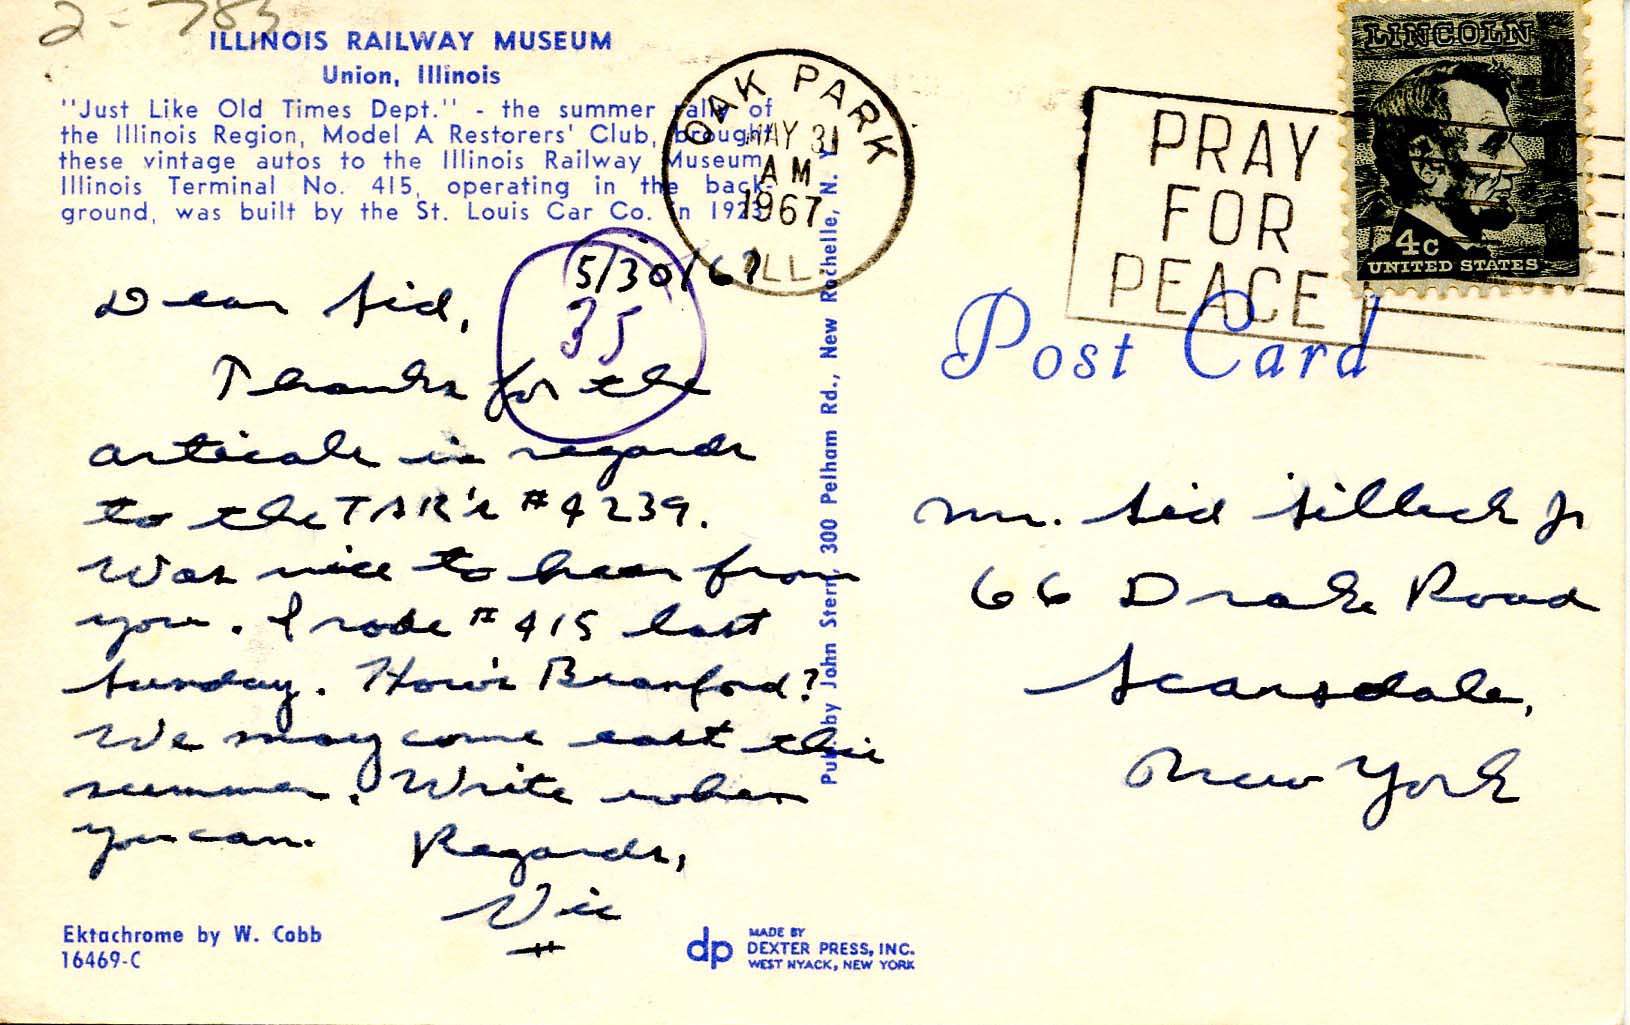 2-783
ILLINOIS RAILWAY MUSEUM
Union, Illinois
"Just Like Old Times Dept." - the summer rally of
the Illinois Region, Model A Restorers' Club, brought
these vintage autos to the Illinois Railway Museum.
Illinois Terminal No. 415, operating in the back-
ground, was built by the St. Louis Car Co. in 1923.
5/30/67
35
Dear Sid,
Thanks for the
articale in regards
to the TARS #4239.
Was nice to hear from
you. I rode #415 last
Sunday. How's Branford?
We may come east this
summer. Write when
you can. Regards,
Vic
Ektachrome by W. Cobb
16469-C
Pub. by John Stern, 300 Pelham Rd., New Rochelle, N. Y.
dp MADE BY
DEXTER PRESS, INC.
WEST NYACK, NEW YORK
OAK PARK
MAY 31
AM
1967
ILL
PRAY
FOR
PEACE
LINCOLN
4c
UNITED STATES
Post Card
Mr. Sid Silleck Jr
66 Drake Road
Scarsdale,
New York